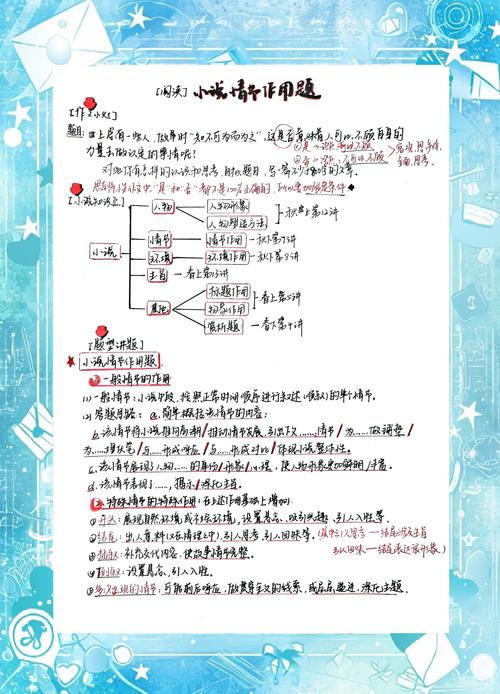 [阅读] 小说情节作用题
[作文小灶]
题目: 世上总有一些人，做事时“知不可为而为之”，这是否意味着人可以不顾自身的
力量去做认定的事情呢?
对此你有怎样的认识和思考，自拟题目，写一篇不少于800字的文章。
[小说知识点]
小说
人物
人物形象
人物塑造方法
秋上第12讲
情节 情节作用 秋下第7讲
环境 环境作用 秋下第9讲
主旨 春上第13讲
其他
标题作用
物象作用
春上第5讲
赏析题 春下第4讲
[题型讲题]
小说情节作用题
① 一般情节的作用
(1) 一般情节：小说中段，按照正常时间顺序进行叙述(顺叙)的单个情节。
(2) 答题思路： a. 简单概括该情节的内容;
b. 该情节将小说推向高潮/推动情节发展，引出下文……情节/为……做调整/
为……埋伏笔/与……形成呼应/与……形成对比/体现小说整体性。
c. 该情节展现了人物……的身份/形象/心理，使人物形象更加鲜明/丰富。
d. 该情节表现了……，揭示/深化主旨。
② 特殊情节的特殊作用：在上述作用基础上增加:
① 开头：展现自然环境或社会环境，设置悬念、吸引兴趣、引人入胜等。
② 结尾：出人意料(又在情理之中)，引人思考、引人回味等。
③ 插叙：补充交代内容，使故事情节完整。
④ 倒叙：设置悬念、引人入胜。
⑤ 多次出现的情节：可能前后呼应，做贯穿全文的线索，或层层递进，深化主题。